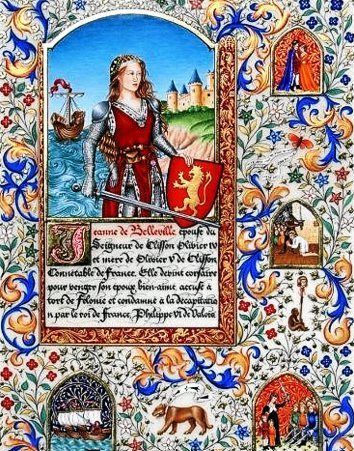 Jeanne de Belleville épouse du
Seigneur de Clisson Olivier IV
et mere de Olivier V de Clisson
Connétable de France. Elle devint corsaire
pour vengre son époux bien-aimé accusé a
tort de félonie et condamné à la decapitatio
n par le roi de France, Philippe VI de Valois